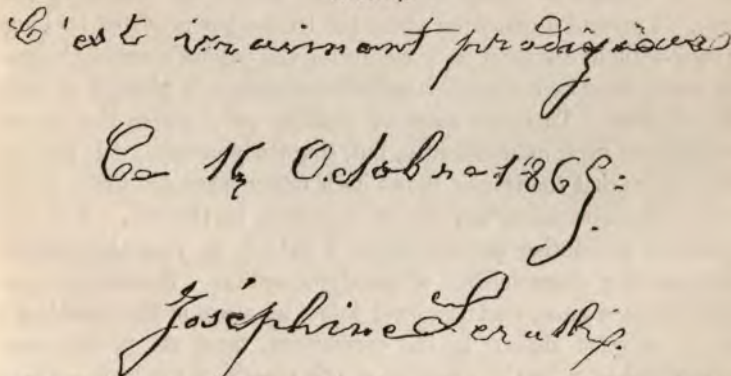 C'est vraiment prodigieux
Ce Octobre 1865.
Joséphine